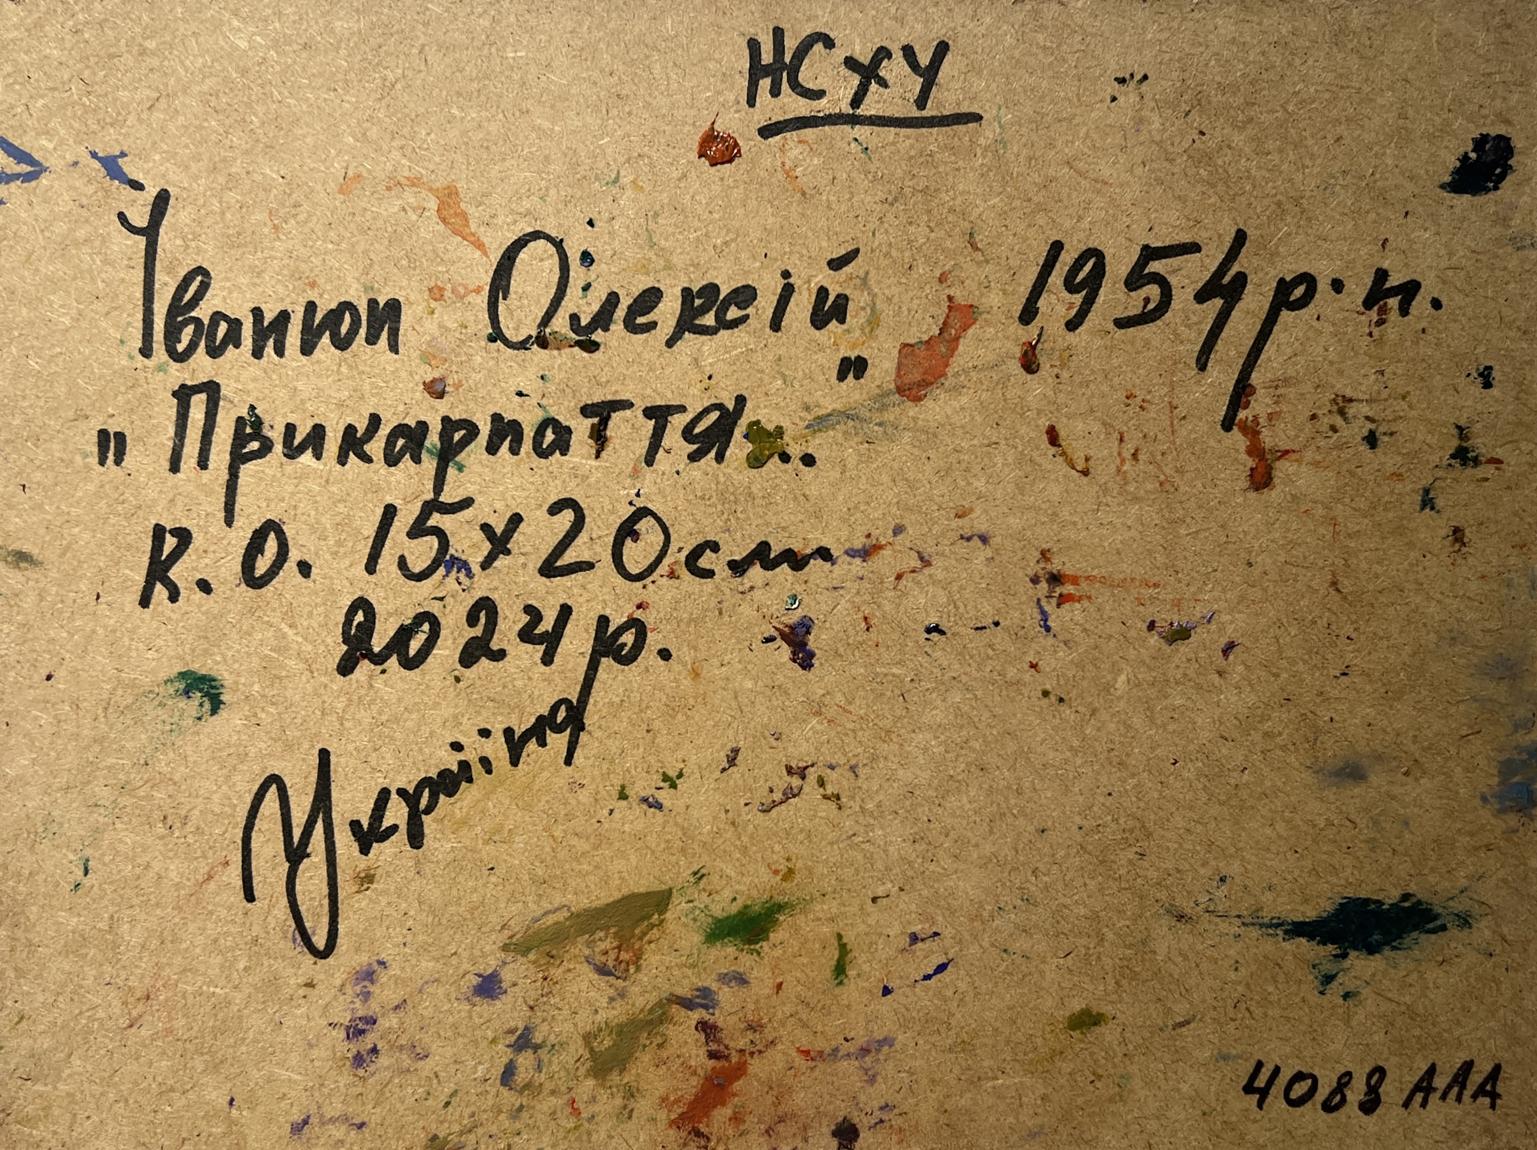 НСХУ
Іванюп Олексій 1954 р.н.
"Прикарпаття..."
к.о. 15х20см
2024р.
Україна
4088 ААА